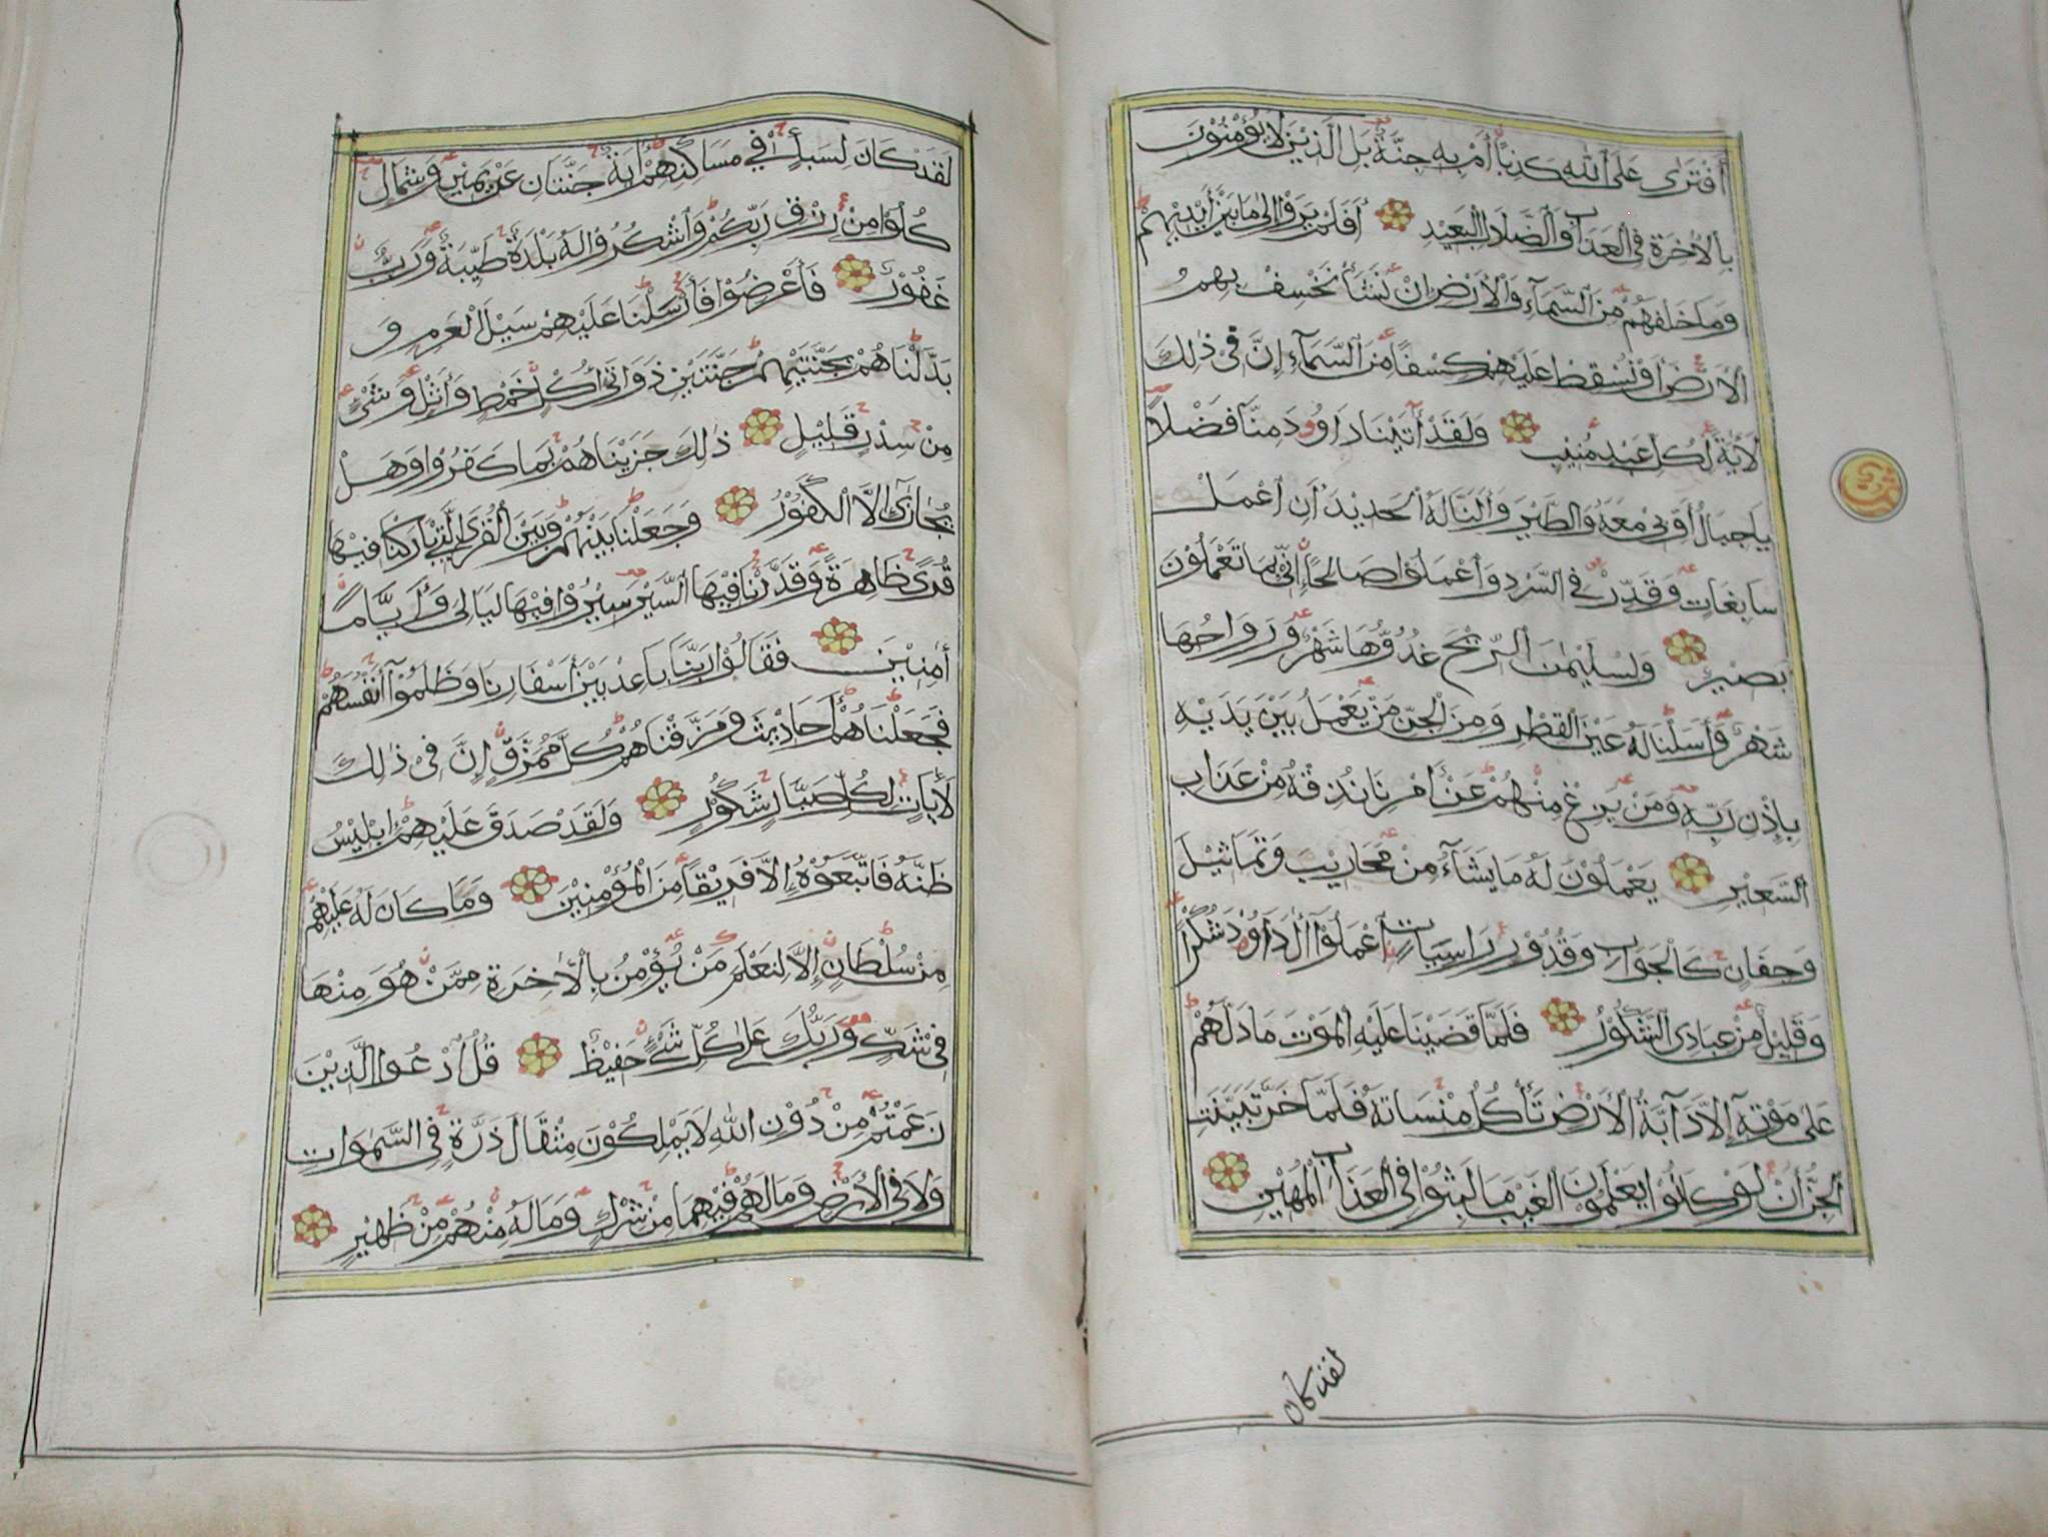 أَفْتَرَى عَلَى اللّٰهِ كَذِبًا أَمْ بِهِ جِنَّةٌ بَلِ الَّذِيْنَ لَا يُؤْمِنُوْنَ
بِالْاٰخِرَةِ فِى الْعَذَابِ وَالضَّلَالِ الْبَعِيْدِ أَفَلَمْ يَرَوْا إِلٰى مَا بَيْنَ أَيْدِيْهِمْ
وَمَا خَلْفَهُمْ مِنَ السَّمَآءِ وَالْأَرْضِ إِنْ نَشَأْ نَخْسِفْ بِهِمُ
الْأَرْضَ أَوْ نُسْقِطْ عَلَيْهِمْ كِسْفًا مِنَ السَّمَآءِ إِنَّ فِىْ ذٰلِكَ
لَاٰيَةً لِكُلِّ عَبْدٍ مُنِيْبٍ وَلَقَدْ آتَيْنَا دَاوُودَ مِنَّا فَضْلًا
يَاجِبَالُ أَوِّبِىْ مَعَهُ وَالطَّيْرَ وَأَلَنَّا لَهُ الْحَدِيْدَ أَنِ اعْمَلْ
سَابِغَاتٍ وَقَدِّرْ فِى السَّرْدِ وَاعْمَلُوْا صَالِحًا إِنِّىْ بِمَا تَعْمَلُوْنَ
بَصِيْرٌ وَلِسُلَيْمٰنَ الرِّيْحَ غُدُوُّهَا شَهْرٌ وَرَوَاحُهَا
شَهْرٌ وَأَسَلْنَا لَهُ عَيْنَ الْقِطْرِ وَمِنَ الْجِنِّ مَنْ يَعْمَلُ بَيْنَ يَدَيْهِ
بِإِذْنِ رَبِّهِ وَمَنْ يَزِغْ مِنْهُمْ عَنْ أَمْرِنَا نُذِقْهُ مِنْ عَذَابِ
السَّعِيْرِ يَعْمَلُوْنَ لَهُ مَا يَشَآءُ مِنْ مَحَارِيْبَ وَتَمَاثِيْلَ
وَجِفَانٍ كَالْجَوَابِ وَقُدُوْرٍ رَاسِيَاتٍ اعْمَلُوْآ اٰلَ دَاوُوْدَ شُكْرًا
وَقَلِيْلٌ مِنْ عِبَادِىَ الشَّكُوْرُ فَلَمَّا قَضَيْنَا عَلَيْهِ الْمَوْتَ مَا دَلَّهُمْ
عَلٰى مَوْتِهٖ إِلَّا دَآبَّةُ الْأَرْضِ تَأْكُلُ مِنْسَاتَهُ فَلَمَّا خَرَّ تَبَيَّنَتِ
الْجِنُّ أَنْ لَوْ كَانُوْا يَعْلَمُوْنَ الْغَيْبَ مَا لَبِثُوْا فِى الْعَذَابِ الْمُهِيْنِ
لقد كان
لَقَدْ كَانَ لِسَبَإٍ فِيْ مَسَاكِنِهِمْ اٰيَةٌ جَنَّتَانِ عَنْ يَمِيْنٍ وَشِمَالٍ
كُلُوْا مِنْ رِزْقِ رَبِّكُمْ وَاشْكُرُوْا لَهُ بَلْدَةٌ طَيِّبَةٌ وَرَبٌّ
غَفُوْرٌ فَأَعْرَضُوْا فَأَرْسَلْنَا عَلَيْهِمْ سَيْلَ الْعَرِمِ وَ
بَدَّلْنَاهُمْ بِجَنَّتَيْهِمْ جَنَّتَيْنِ ذَوَاتَىْ أُكُلٍ خَمْطٍ وَأَثْلٍ وَشَىْءٍ
مِنْ سِدْرٍ قَلِيْلٍ ذٰلِكَ جَزَيْنَاهُمْ بِمَا كَفَرُوْا وَهَلْ
يُجَازٰٓى إِلَّا الْكَفُوْرُ وَجَعَلْنَا بَيْنَهُمْ وَبَيْنَ الْقُرَى الَّتِيْ بَارَكْنَا فِيْهَا
قُرًى ظَاهِرَةً وَقَدَّرْنَا فِيْهَا السَّيْرَ سِيْرُوْا فِيْهَا لَيَالِىَ وَأَيَّامًا
اٰمِنِيْنَ فَقَالُوْا رَبَّنَا بَاعِدْ بَيْنَ أَسْفَارِنَا وَظَلَمُوْآ أَنْفُسَهُمْ
فَجَعَلْنَاهُمْ أَحَادِيْثَ وَمَزَّقْنَاهُمْ كُلَّ مُمَزَّقٍ إِنَّ فِىْ ذٰلِكَ
لَاٰيَاتٍ لِكُلِّ صَبَّارٍ شَكُوْرٍ وَلَقَدْ صَدَقَ عَلَيْهِمْ إِبْلِيْسُ
ظَنَّهُ فَاتَّبَعُوْهُ إِلَّا فَرِيْقًا مِنَ الْمُؤْمِنِيْنَ وَمَا كَانَ لَهُ عَلَيْهِمْ
مِنْ سُلْطَانٍ إِلَّا لِنَعْلَمَ مَنْ يُؤْمِنُ بِالْاٰخِرَةِ مِمَّنْ هُوَ مِنْهَا
فِىْ شَكٍّ وَرَبُّكَ عَلٰى كُلِّ شَىْءٍ حَفِيْظٌ قُلِ ادْعُوا الَّذِيْنَ
زَعَمْتُمْ مِنْ دُوْنِ اللّٰهِ لَا يَمْلِكُوْنَ مِثْقَالَ ذَرَّةٍ فِى السَّمٰوَاتِ
وَلَا فِى الْأَرْضِ وَمَا لَهُمْ فِيْهِمَا مِنْ شِرْكٍ وَمَا لَهُ مِنْهُمْ مِنْ ظَهِيْرٍ